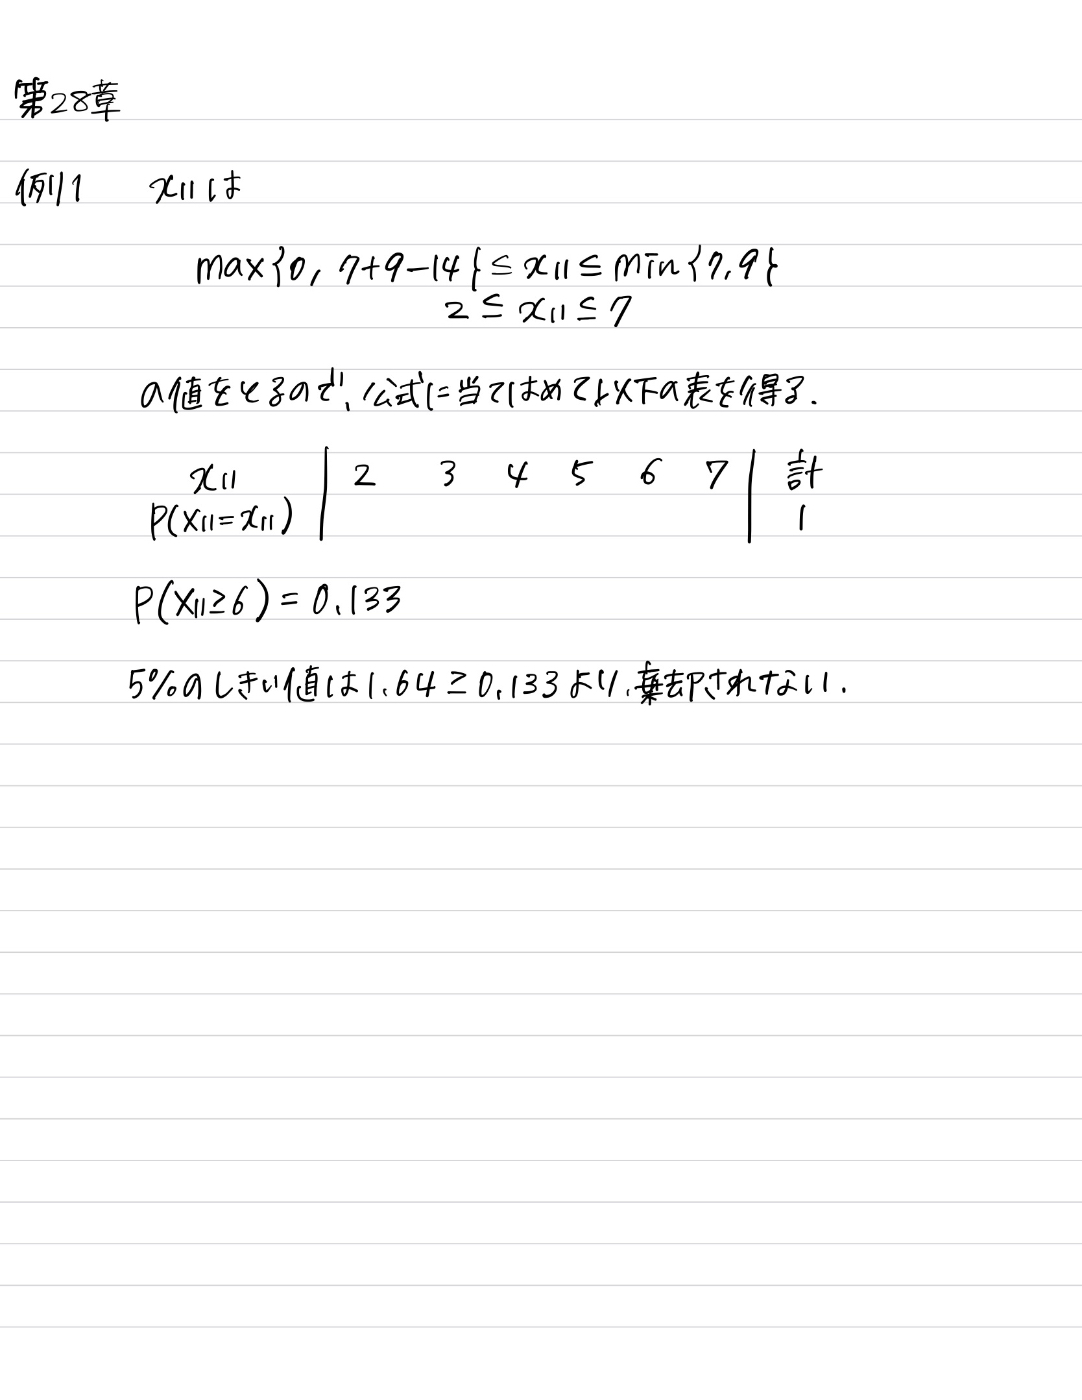 第28章
例1 x11は
max{0, 7+9-14} ≤ x11 ≤ min{7,9}
2 ≤ x11 ≤ 7
の値をとるので、公式に当てはめて以下の表を得る.
x11 | 2 3 4 5 6 7 | 計
P(X11=x11) | | 1
P(X11≥6) = 0.133
5%のしきい値は1.64 ≥ 0.133より、棄却されない.